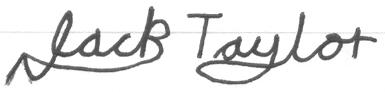 Jack Taylor